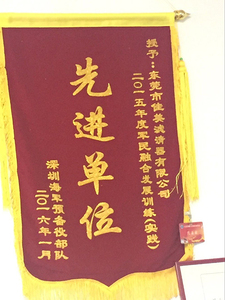 授予：东莞市佳英滤清器有限公司
二〇一五年度军民融合发展训练(实践)
先进单位
深圳海军预备役部队
二〇一六年一月